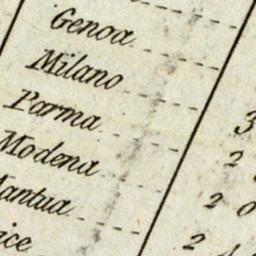 Genoa
Milano
Parma 3
Modena 2
Mantua 2 0
2